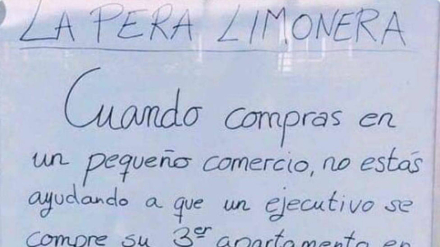 LA PERA LIMONERA
Cuando compras en
un pequeño comercio, no estás
ayudando a que un ejecutivo se
compre su 3er apartamento en